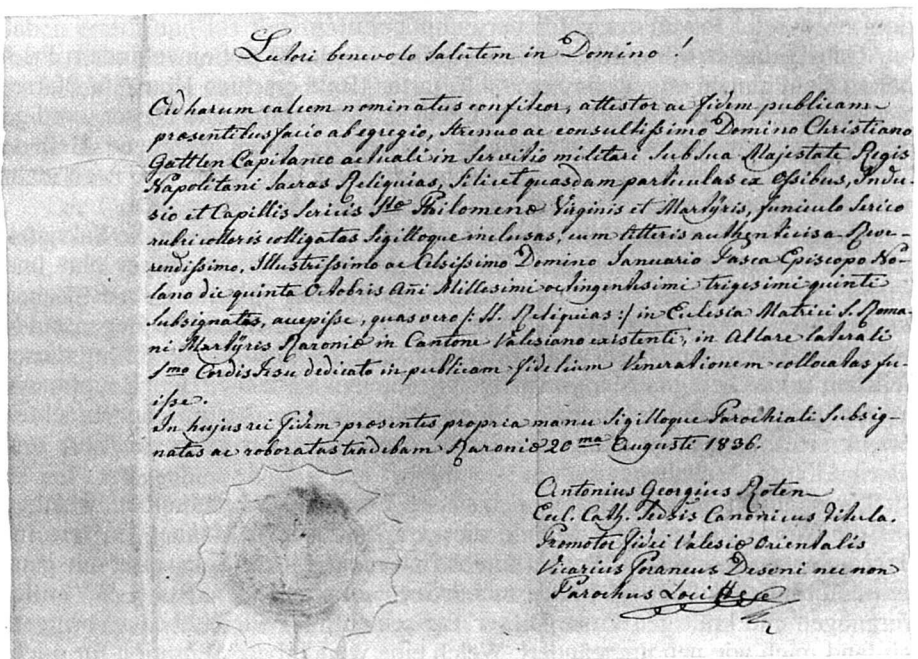 Lectori benevolo Salutem in Domino!
Ad harum calcem nominatus confiteor, attestor ac fidem publicam
presentibus facio ab egregio, strenuo ac consultissimo Domino Christiano
Gattlen Capitaneo actuali in Servitio militari Sub Sua Majestate Regis
Napolitani Sacras Reliquias, Scilicet quasdam particulas ex Ossibus, Indu-
sio et Capillis Sericis Stæ Philomenæ Virginis et Martÿris, funiculo Serico
rubri colloris colligatas Sigilloque inclusas, cum litteris authenticis a Reve-
rendissimo, Illustrissimo ac Celsissimo Domino Januario Pasca Episcopo No-
lano die quinta Octobris Añi Millesimi octingentesimi trigesimi quinti
Subsignatas, accepisse, quas vero /: SS. Reliquias :/ in Eclesia Matrici S. Roma-
ni Martÿris Raroniæ in Cantone Valesiano existenti, in Altare laterali
Smo Cordis Jesu dedicato in publicam fidelium Venerationem collocatas fu-
isse.
In hujus rei fidem præsentes propria manu Sigilloque Parochiali Subsig-
natas ac roboratas tradebam Raroniæ 20ma Augusti 1836.
Antonius Georgius Roten
Ecl. Cath. Sedis Canonicus Titula.
Promotor fidei Valesiæ Orientalis
Vicarius Foraneus Deseni nec non
Parochus Loci